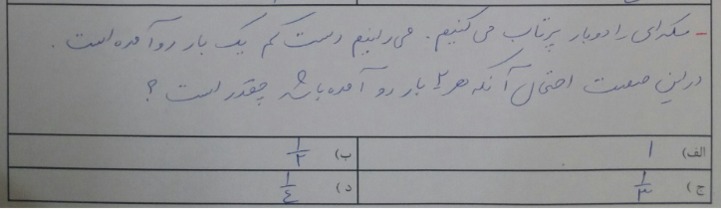 - سکه‌ای را دوبار پرتاب می‌کنیم. می‌دانیم دست کم یک بار رو آمده است.
در این صورت احتمال آنکه هر ۲ بار رو آمده باشد چقدر است؟
الف) ۱ ب) ۱/۲
ج) ۱/۳ د) ۱/۴